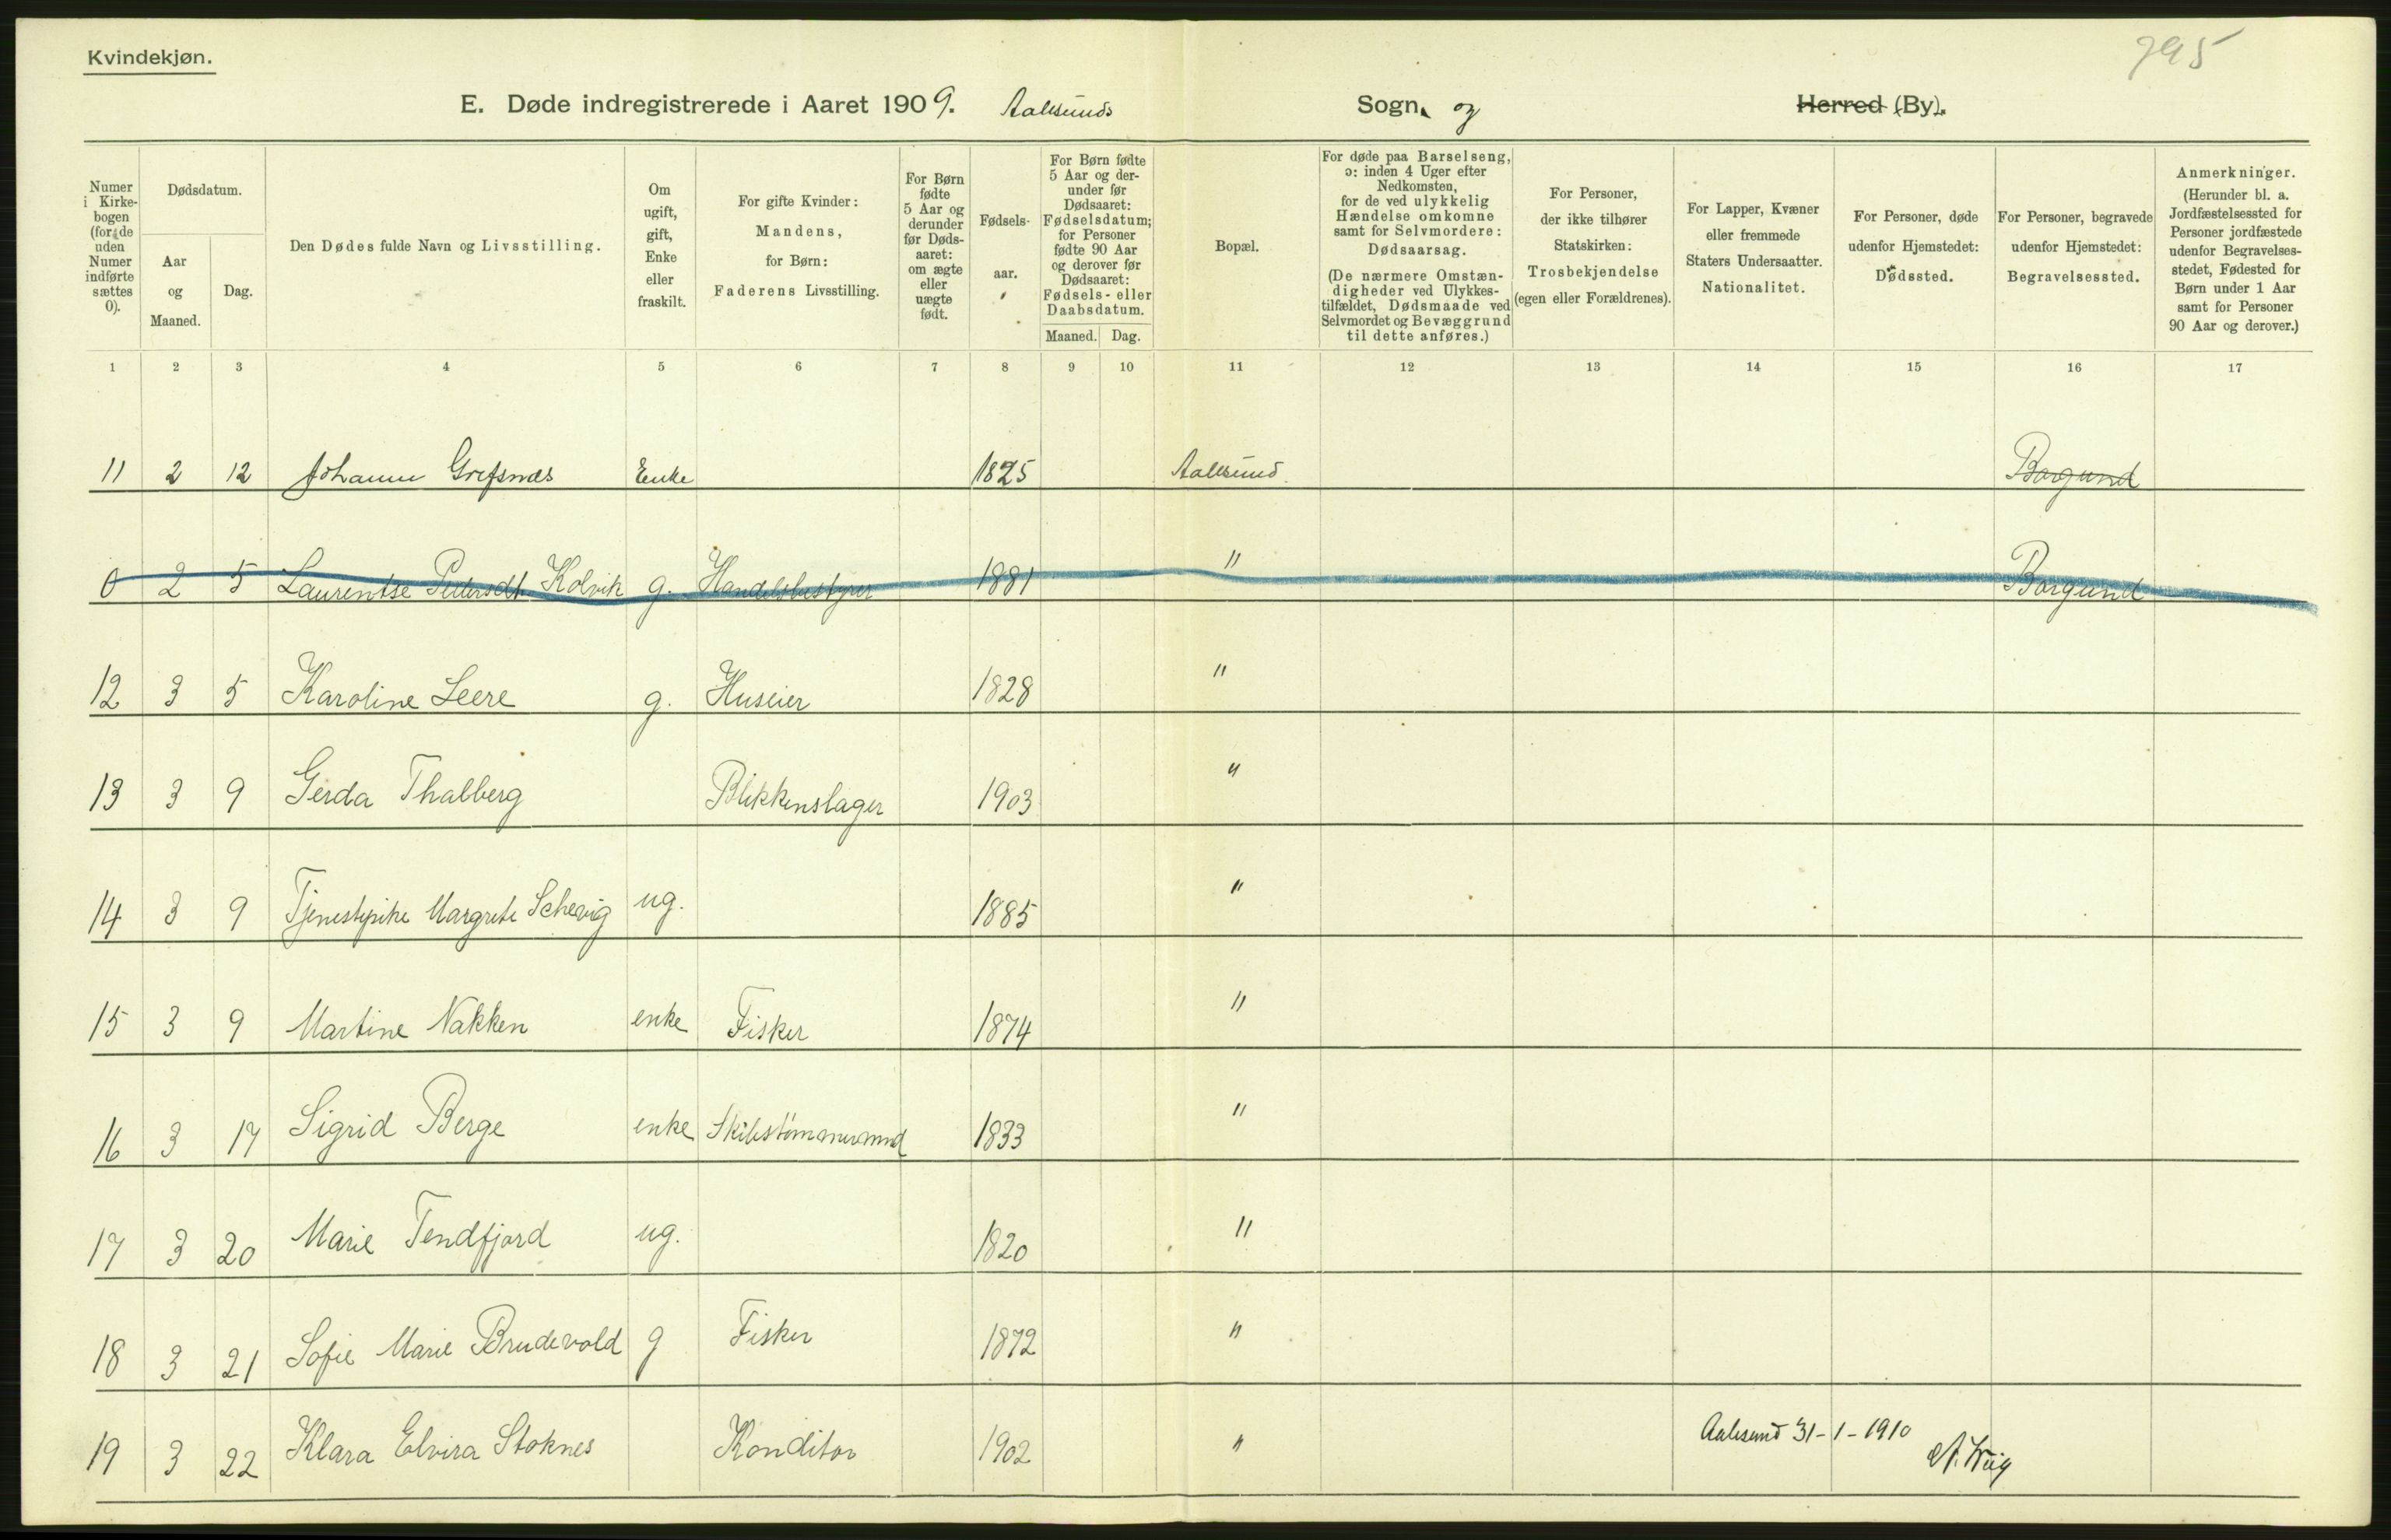 Kvindekjøn.
795
E. Døde indregistrerede i Aaret 1909. Aalesunds Sogn og Herred (By).
Numer i Kirkebogen (for de uden Numer indførte sættes 0).
Dødsdatum.
Aar og Maaned.
Dag.
Den Dødes fulde Navn og Livsstilling.
Om ugift, gift, Enke eller fraskilt.
For gifte Kvinder: Mandens, for Børn: Faderens Livsstilling.
For Børn fødte 5 Aar og derunder før Dødsaaret: om ægte eller uægte født.
Fødselsaar.
For Børn fødte 5 Aar og derunder før Dødsaaret: Fødselsdatum; for Personer fødte 90 Aar og derover før Dødsaaret: Fødsels- eller Daabsdatum.
Maaned. Dag.
Bopæl.
For døde paa Barselseng, ɔ: inden 4 Uger efter Nedkomsten, for de ved ulykkelig Hændelse omkomne samt for Selvmordere: Dødsaarsag.
(De nærmere Omstændigheder ved Ulykkestilfældet, Dødsmaade ved Selvmordet og Bevæggrund til dette anføres.)
For Personer, der ikke tilhører Statskirken: Trosbekjendelse (egen eller Forældrenes).
For Lapper, Kvæner eller fremmede Staters Undersaatter. Nationalitet.
For Personer, døde udenfor Hjemstedet: Dødssted.
For Personer, begravede udenfor Hjemstedet: Begravelsessted.
Anmerkninger.
(Herunder bl. a. Jordfæstelsessted for Personer jordfæstede udenfor Begravelsesstedet, Fødested for Børn under 1 Aar samt for Personer 90 Aar og derover.)
1 2 3 4 5 6 7 8 9 10 11 12 13 14 15 16 17
11 2 12 Johanne Grefsnæs Enke 1825 Aalesund. Borgund
0 2 5 Laurentse Pettersdt. Kolvik g. Handelsbestyrer 1881 " Borgund
12 3 5 Karoline Leere g. Huseier 1828 "
13 3 9 Gerda Thalberg Blikkenslager 1903 "
14 3 9 Tjenestepike Margrete Schevig ug. 1885 "
15 3 9 Martine Nakken enke Fisker 1874 "
16 3 17 Sigrid Berge enke Skibstømmermand 1833 "
17 3 20 Marie Tendfjord ug. 1820 "
18 3 21 Sofie Marie Brudevold g Fisker 1872 "
19 3 22 Klara Elvira Stoknes Konditor 1902 "
Aalesund 31-1-1910